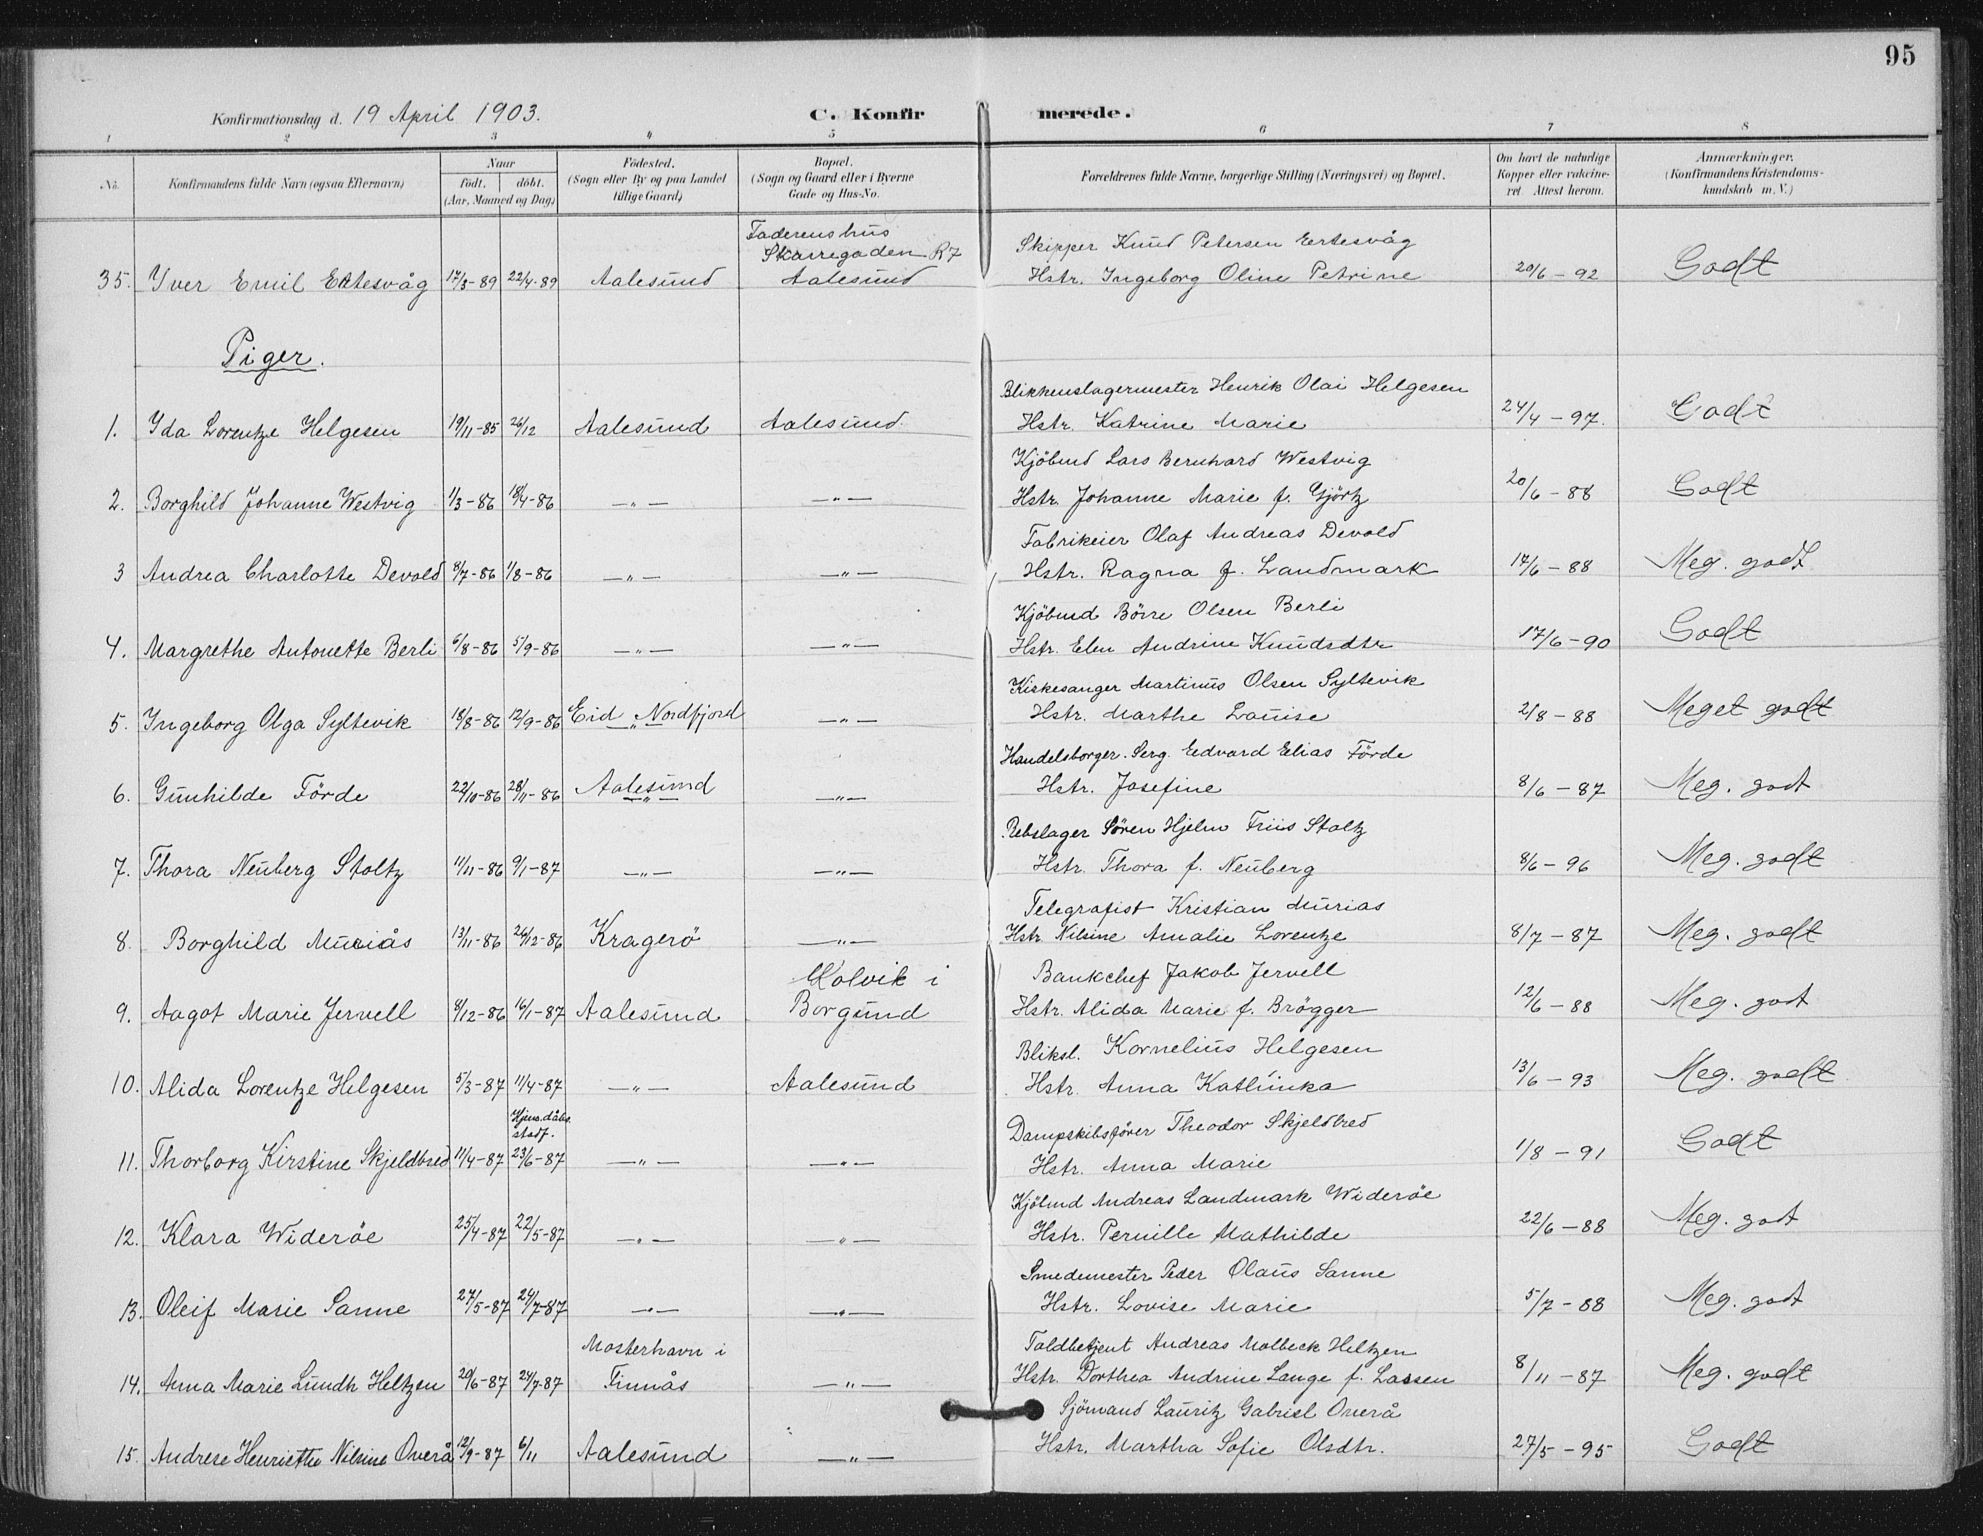 95
Konfirmationsdag d. 19 April 1903. C. Konfirmerede.
1 2 3 4 5 6 7 8
No. Konfirmandens fulde Navn (ogsaa Efternavn) Naar født. døbt. (Aar, Maaned og Dag) Fødested. (Sogn eller By og paa Landet tillige Gaard) Bopæl. (Sogn og Gaard eller i Byerne Gade og Hus-No. Forældrenes fulde Navne, borgerlige Stilling (Næringsvei) og Bopæl. Om havt de naturlige Kopper eller vakcineret. Attest herom. Anmærkninger. (Konfirmandens Kristendomskundskab m. V.)
Faderens hus
Skarregaden R7 Skipper Knud Petersen Eertesvåg
35. Yver Emil Ertesvåg 17/3-89 22/4-89 Aalesund Aalesund Hstr. Ingeborg Oline Petrine 20/6-92 Godt
Piger.
Blikkenslagermester Henrik Olai Helgesen
1. Yda Lorentze Helgesen 19/11-85 26/12 Aalesund Aalesund. Hstr. Katrine Marie 24/4-97. Godt
Kjöbmd Lars Bernhard Westvig
2. Borghild Johanne Westvig 1/3-86 18/4-86 —"— —"— Hstr. Johanne Marie f. Gjörtz 20/6-88 Godt
Fabrikeier Olaf Andreas Devold
3 Andrea Charlotte Devold 8/7-86 1/8-86 —"— —"— Hstr. Ragna f. Landmark 17/6-88 Meg. godt
Kjöbmd Börre Olsen Berli
4. Margrethe Antonette Berli 6/8-86 5/9-86 —"— —"— Hstr. Elen Andrine Knudsdtr 17/6-90 Godt
Kirkesanger Martinus Olsen Syltevik
5. Ingeborg Olga Syltevik 18/8-86 12/9-86 Eid Nordfjord —"— Hstr. Marthe Louise 2/8-88 Meget godt
Handelsborger. Serg. Eedvard Elias Förde
6. Gunhilde Förde 22/10-86 28/11-86 Aalesund —"— Hstr. Josefine 8/6-87 Meg. godt
Rebslager Sören Hjelm Friis Stoltz
7. Thora Neuberg Stoltz 11/11-86 9/1-87 —"— —"— Hstr. Thora f. Neuberg 8/6-96 Meg. godt
Telegrafist Kristian Murias
8. Borghild Muriås 13/11-86 26/12-86 Kragerö —"— Hstr Nilsine Amalie Lorentze 8/7-87 Meg. godt
Volvik i Bankchef Jakob Jervell
9. Aagot Marie Jervell 8/12-86 16/1-87 Aalesund Borgund Hstr. Alida Marie f. Brøgger 12/6-88 Meg. godt
Bliksl. Kornelius Helgesen
10. Alida Lorentze Helgesen 5/3-87 11/4-87 —"— Aalesund Hstr. Anna Kathinka 13/6-93 Meg. godt
Hjem.dåbs stadf. Dampskibsfører Theodor Skjeldbred
11. Thorborg Kirstine Skjeldbred 11/4-87 23/6-87 —"— —"— Hstr. Anna Marie 1/8-91 Godt
Kjöbmd Andreas Landmark Widerøe
12. Klara Widerøe 25/4-87 22/5-87 —"— —"— Hstr. Pernille Mathilde 22/6-88 Meg. godt
Smedemester Peder Olaus Sanne
13. Oleif Marie Sanne 27/5-87 24/7-87 —"— —"— Hstr. Lovise Marie 5/7-88 Meg. godt
Mosterhavn i Toldbetjent Andreas Molbeck Heltzen
14. Anna Marie Lundh Heltzen 20/6-87 24/7-87 Finnås —"— Hstr. Dorthea Andrine Lange f. Lassen 8/11-87 Meg. godt
Sjömand Lauritz Gabriel Overå
15. Andrese Henriette Nilsine Overå 12/9-87 6/11 Aalesund —"— Hstr. Martha Sofie Olsdtr. 27/5-95 Godt